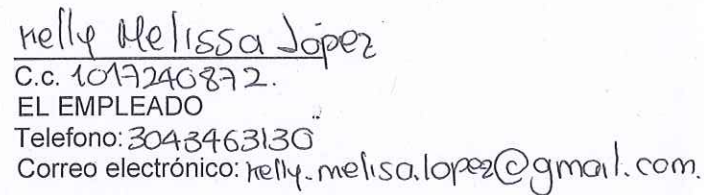 Kelly Melissa López
C.c. 1017240872.
EL EMPLEADO
Telefono: 3043463130
Correo electrónico: kelly.melisa.lopez@gmail.com.